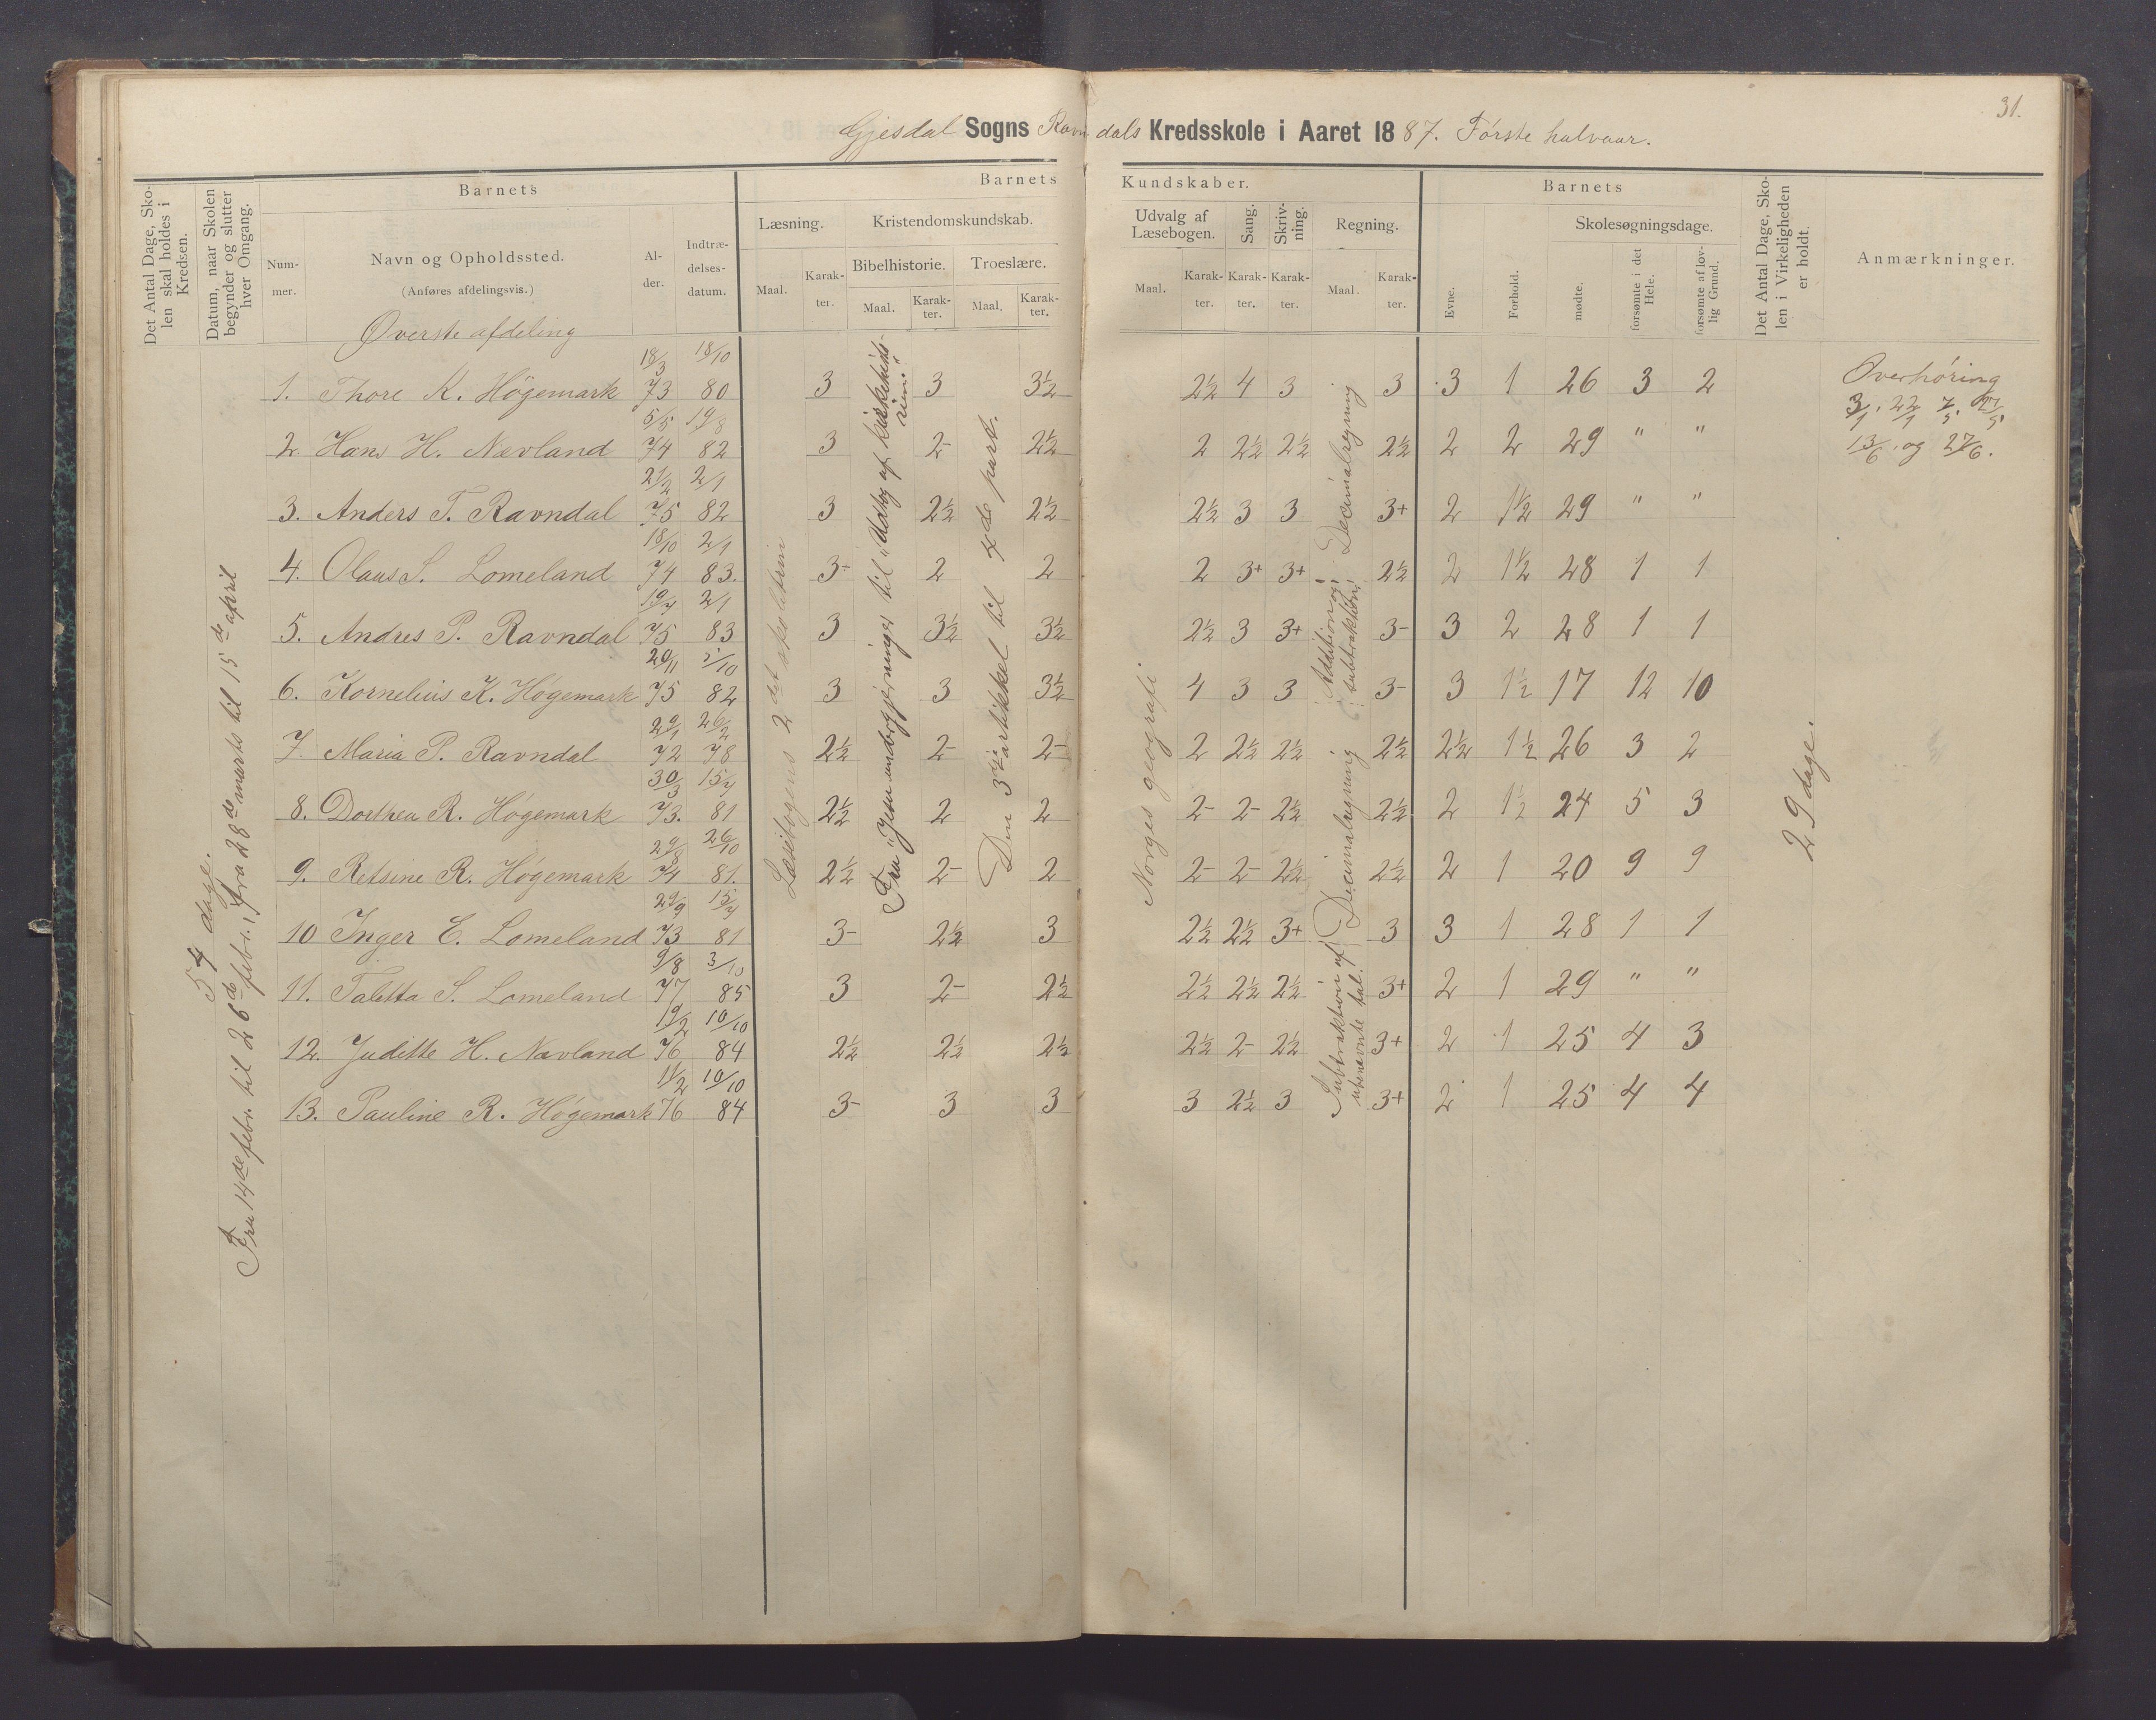 31.
Gjesdal Sogns Ravndals Kredsskole i Aaret 1887. Første halvaar.
Det Antal Dage, Skolen skal holdes i Kredsen.
Datum, naar Skolen begynder og slutter hver Omgang.
Barnets
Nummer.
Navn og Opholdssted.
(Anføres afdelingsvis.)
Alder.
Indtrædelsesdatum.
Barnets Kundskaber.
Læsning.
Maal.
Karakter.
Kristendomskundskab.
Bibelhistorie.
Maal.
Karakter.
Troeslære.
Maal.
Karakter.
Udvalg af Læsebogen.
Maal.
Karakter.
Sang.
Karakter.
Skrivning.
Karakter.
Regning.
Maal.
Karakter.
Barnets
Evne.
Forhold.
Skolesøgningsdage.
mødte.
forsømte i det Hele.
forsømte af lovlig Grund.
Det Antal Dage, Skolen i Virkeligheden er holdt.
Anmærkninger.
Øverste afdeling
1. Thore K. Högemark 18/3 73 18/10 80 3 3 3½ 2½ 4 3 3 3 1 26 3 2
2 Hans H. Nævland 5/5 74 19/8 82 3 2- 2½ 2 2½ 2½ 2½ 2 2 29 " "
3. Anders T. Ravndal 21/2 75 2/1 82 3 2½ 2½ 2½ 3 3 3+ 2 1½ 29 " "
4. Olaus S. Lomeland 18/10 74 2/1 83. 3- 2 2 2 3+ 3+ 2½ 2 1½ 28 1 1
5. Andres P. Ravndal 19/4 75 2/1 83 3 3½ 3½ 2½ 3 3+ 3- 3 2 28 1 1
6. Kornelius K. Högemark 20/11 75 5/10 82 3 3 3½ 4 3 3 3- 3 1½ 17 12 10
7. Maria P. Ravndal 29/1 72 26/2 78 2½ 2- 2- 2 2½ 2½ 2½ 2½ 1½ 26 3 2
8. Dorthea R. Högemark 30/3 73. 15/4 81 2½ 2 2 2- 2- 2½ 2½ 2 1½ 24 5 3
9. Retsine R. Högemark 29/8 74 26/10 81. 2½ 2- 2 2- 2- 2½ 2½ 2 1 20 9 9
10 Inger E. Lomeland 29/9 73 15/4 81 3- 2½ 3 2½ 2½ 3+ 3 3 1 28 1 1
11. Taletta S. Lomeland 9/8 77 3/10 85 3 2- 2½ 2½ 2½ 2½ 3+ 2 1 29 " "
12. Juditte H. Nævland 19/2 76 10/10 84 2½ 2½ 2½ 2½ 2- 2½ 3+ 2 1 25 4 3
13. Pauline R. Högemark 11/2 76 10/10 84 3- 3 3 3 2½ 3 3+ 2 1 25 4 4
54 dage.
Fra 14de febr. til 26de febr., fra 28de marts til 15de april
Læsebogens 2det skoletrin
Fra "Jesu undergjerninger til "Udtog af kirkehistorien."
Den 3die artikkel til 4de part.
Norges geografi
Decimalregning
Addition og subtraktion.
Decimalregning
Subtraktion af ubenævnte tal.
29 dage.
Overhøring
3/1. 22/1 7/5. 27/5
13/6. og 27/6.